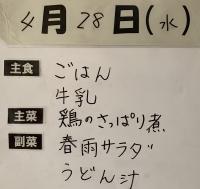 4月28日(水)
主食 ごはん
牛乳
主菜 鶏のさっぱり煮
副菜 春雨サラダ
うどん汁